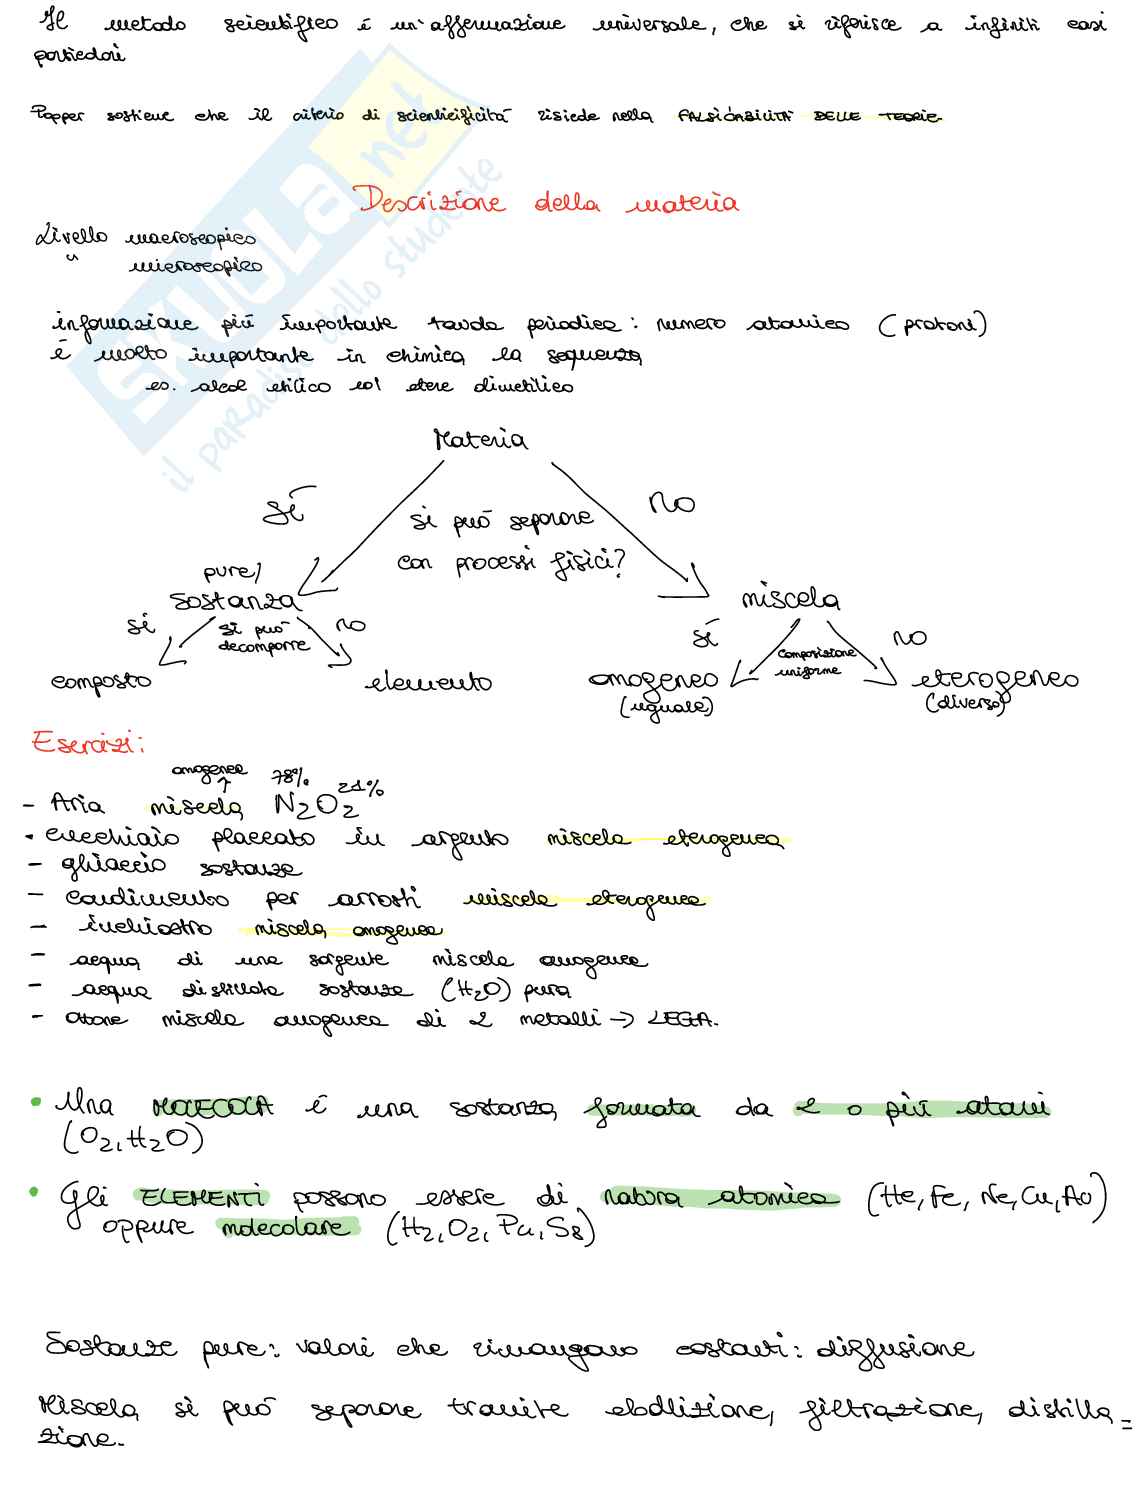 Il metodo scientifico é un'affermazione universale, che si riferisce a infiniti casi
particolari
Popper sostiene che il criterio di scientificità risiede nella FALSICABILITÀ DELLE TEORIE.
SKUOLA.net
il paradiso dello studente
Descrizione della materia
Livello macroscopico
" microscopico
informazione più importante tavola periodica: numero atomico (protoni)
é molto importante in chimica la sequenza
es. alcol etilico col etere dimetilico
Materia
Sí NO
si può separare
con processi fisici?
pure/
sostanza miscela
si si può decomporre no
sí composizione uniforme NO
composto elemento omogeneo eterogeneo
(uguale) (diverso)
Esercizi:
omogenea 78% 21%
- Aria miscela N2O2
- cucchiaio placcato in argento miscela eterogenea
- ghiaccio sostanza
- condimento per arrosti miscela eterogenea
- inchiostro miscela omogenea
- acqua di una sorgente miscela omogenea
- acqua distillata sostanza (H2O) pura
- ottone miscela omogenea di 2 metalli → LEGA.
• Una MOLECOLA é una sostanza formata da 2 o più atomi
(O2, H2O)
• Gli ELEMENTI possono essere di natura atomica (He, Fe, Ne, Cu, Au)
oppure molecolare (H2, O2, P4, S8)
Sostanze pure: valori che rimangono costanti: diffusione
Miscela si può separare tramite ebollizione, filtrazione, distilla=
zione.